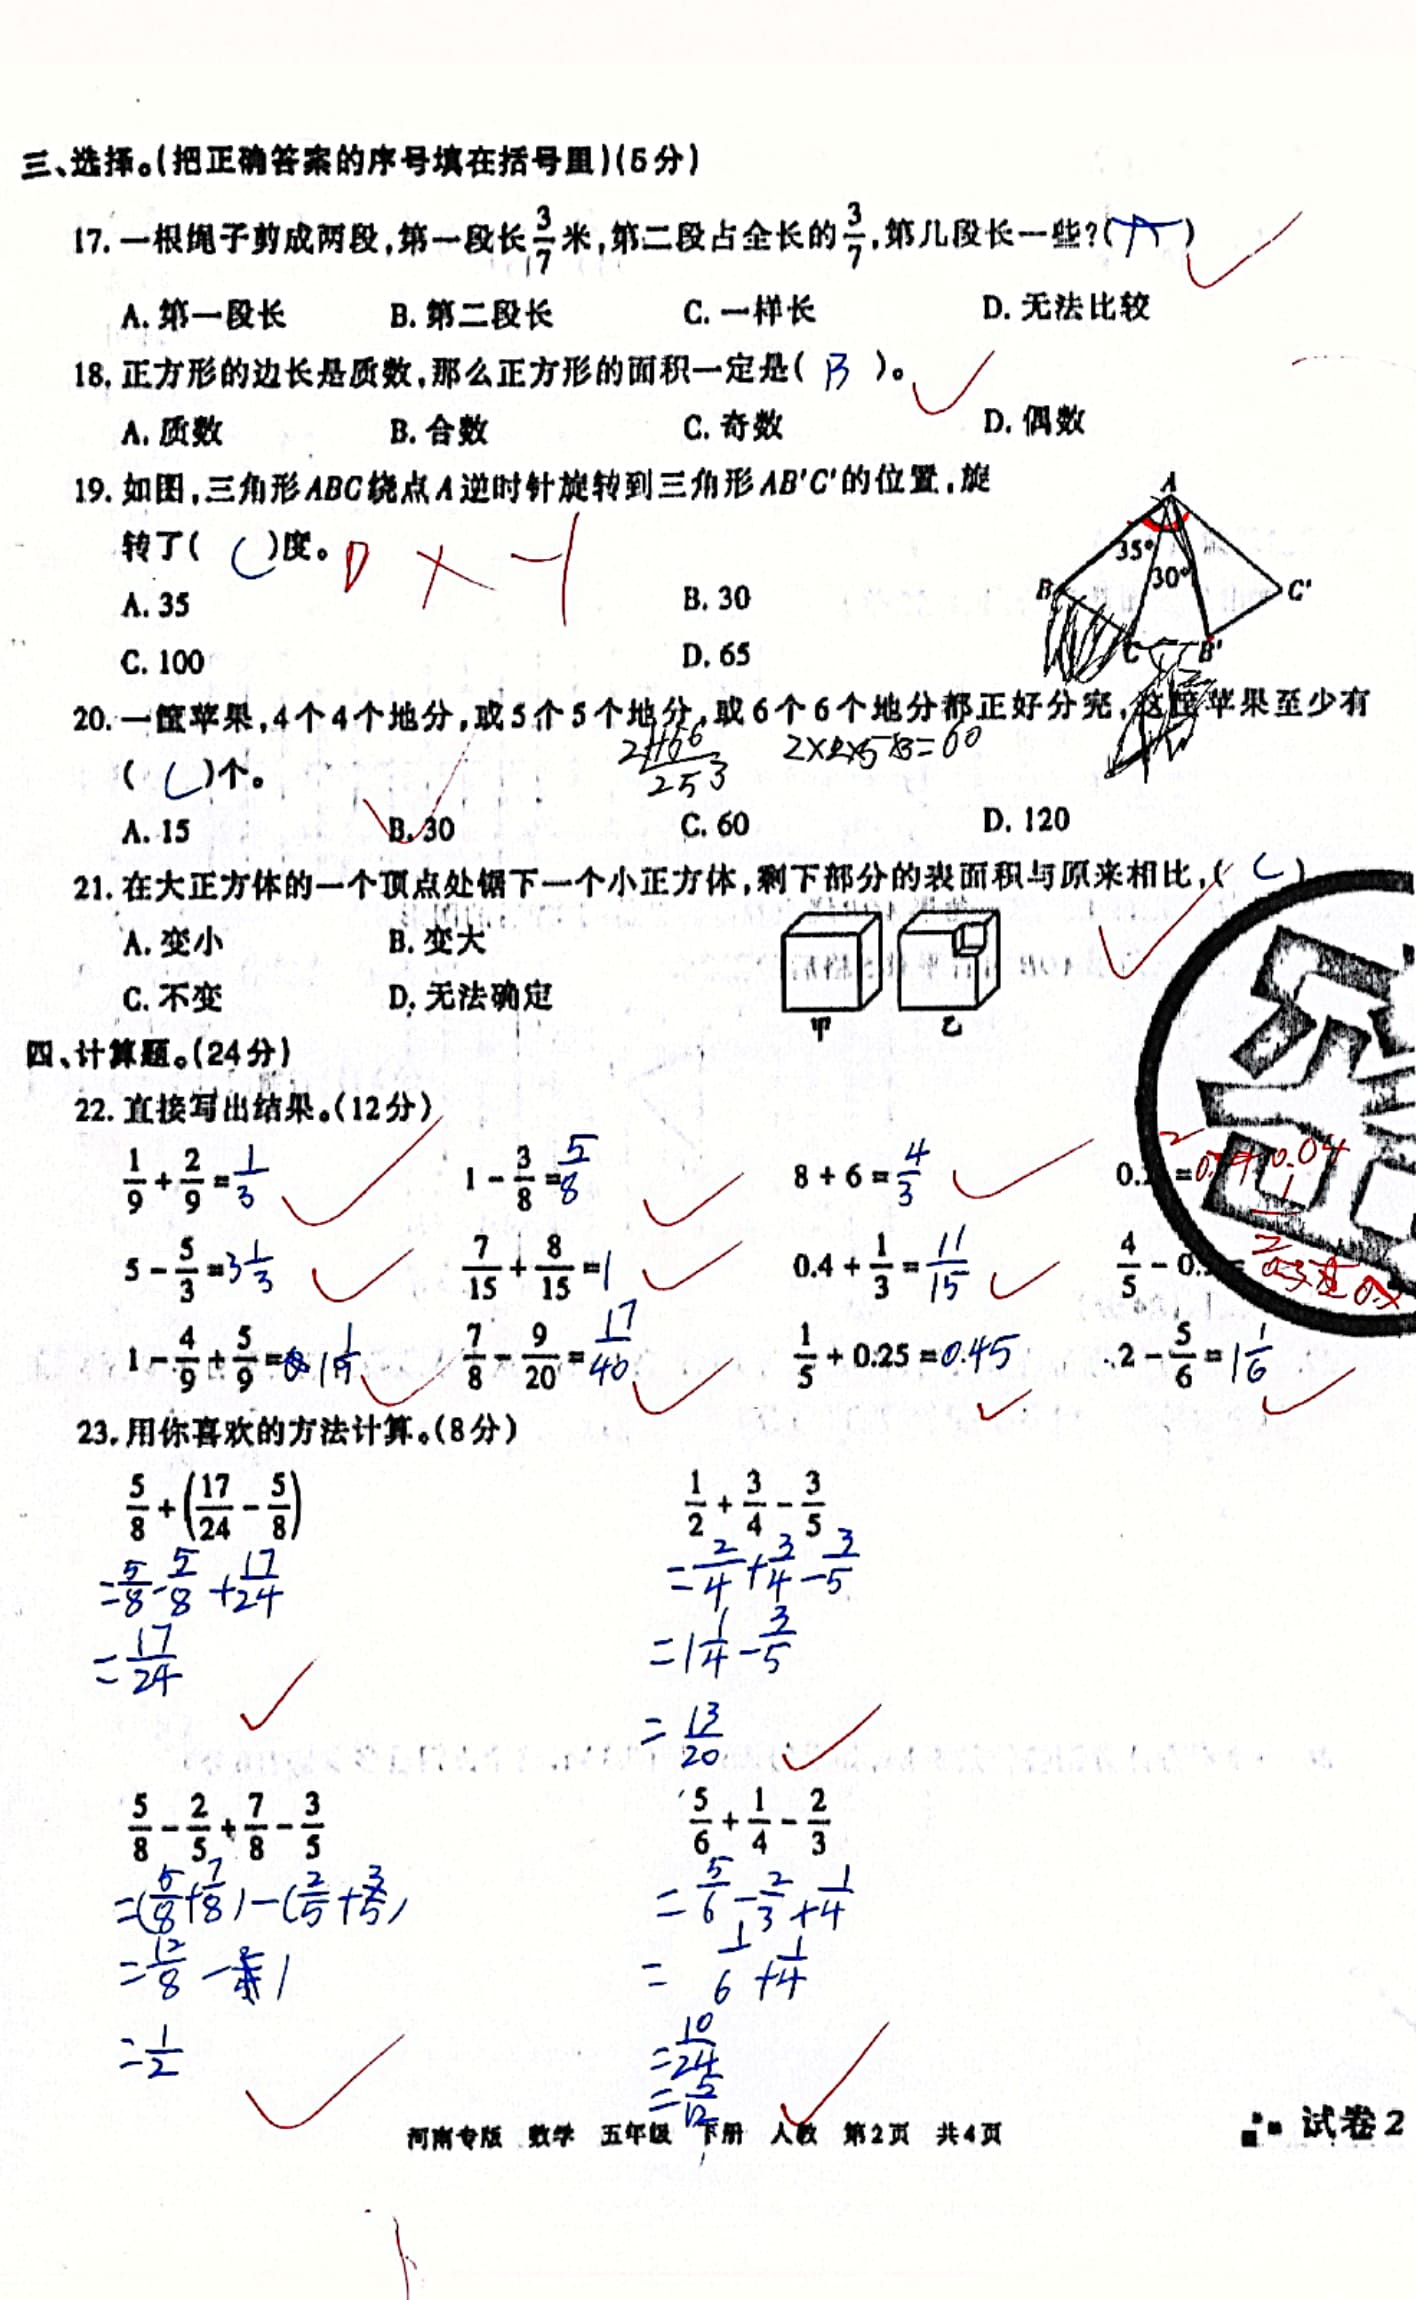 三、选择。(把正确答案的序号填在括号里)(5分)
17. 一根绳子剪成两段,第一段长3/7米,第二段占全长的3/7,第几段长一些?(A)
A. 第一段长 B. 第二段长 C. 一样长 D. 无法比较
18. 正方形的边长是质数,那么正方形的面积一定是( B )。
A. 质数 B. 合数 C. 奇数 D. 偶数
19. 如图,三角形ABC绕点A逆时针旋转到三角形AB'C'的位置,旋
转了( C )度。 D × -1
A. 35 B. 30
C. 100 D. 65
A
35°
30°
B C B' C'
20. 一筐苹果,4个4个地分,或5个5个地分,或6个6个地分都正好分完,这筐苹果至少有
2 4 5 6
2 5 3
2×2×5×3=60
( C )个。
A. 15 B. 30 C. 60 D. 120
21. 在大正方体的一个顶点处锯下一个小正方体,剩下部分的表面积与原来相比,( C )
A. 变小 B. 变大
C. 不变 D. 无法确定
甲 乙
四、计算题。(24分)
22. 直接写出结果。(12分)
1/9 + 2/9 = 1/3 1 - 3/8 = 5/8 8 ÷ 6 = 4/3 0. = 0.04
5 - 5/3 = 3 1/3 7/15 + 8/15 = 1 0.4 + 1/3 = 11/15 4/5 - 0. =
1 - 4/9 + 5/9 = 1 1/9 7/8 - 9/20 = 17/40 1/5 + 0.25 = 0.45 2 - 5/6 = 1 1/6
23. 用你喜欢的方法计算。(8分)
5/8 + (17/24 - 5/8) 1/2 + 3/4 - 3/5
= 5/8 - 5/8 + 17/24 = 2/4 + 3/4 - 3/5
= 17/24 = 1 1/4 - 3/5
= 13/20
5/8 - 2/5 + 7/8 - 3/5 5/6 + 1/4 - 2/3
= (5/8 + 7/8) - (2/5 + 3/5) = 5/6 - 2/3 + 1/4
= 12/8 - 1 = 1/6 + 1/4
= 1/2 = 10/24
= 5/12
河南专版 数学 五年级 下册 人教 第2页 共4页
试卷2